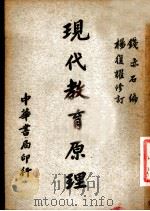 錢亦石編
楊復耀修訂
現代教育原理
中華書局印行